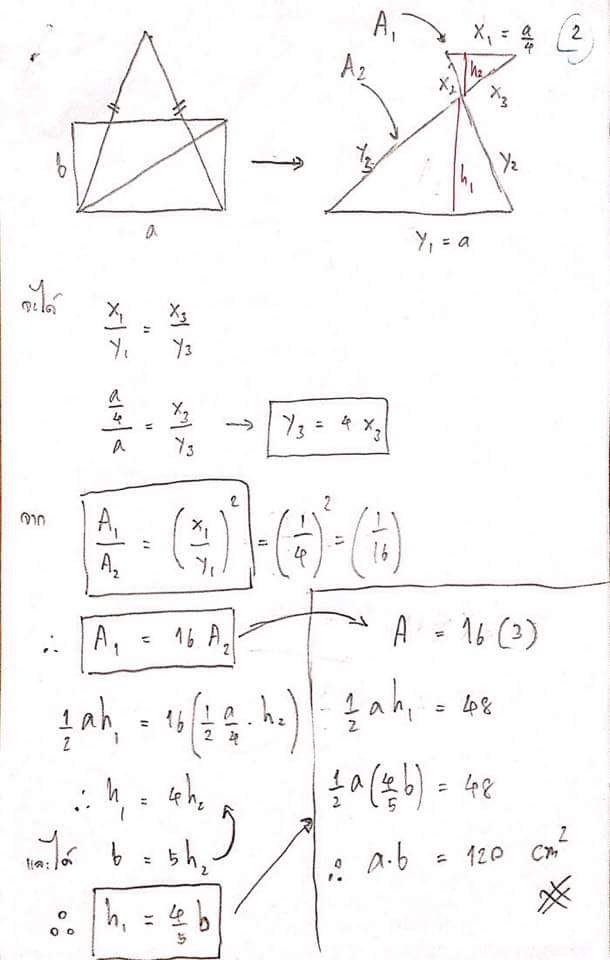 2
b
a
A₁
X₁ = a/4
A₂
h₂
X₂
X₃
Y₃
Y₂
h₁
Y₁ = a
จะได้ X₁/Y₁ = X₃/Y₃
(a/4)/a = X₃/Y₃ → Y₃ = 4 X₃
จาก A₁/A₂ = (X₁/Y₁)² = (1/4)² = (1/16)
∴ A₁ = 16 A₂
1/2 ah₁ = 16(1/2 a/4 · h₂)
∴ h₁ = 4h₂
และได้ b = 5h₂
∴ h₁ = 4/5 b
A = 16 (3)
1/2 a h₁ = 48
1/2 a(4/5 b) = 48
∴ a·b = 120 cm²